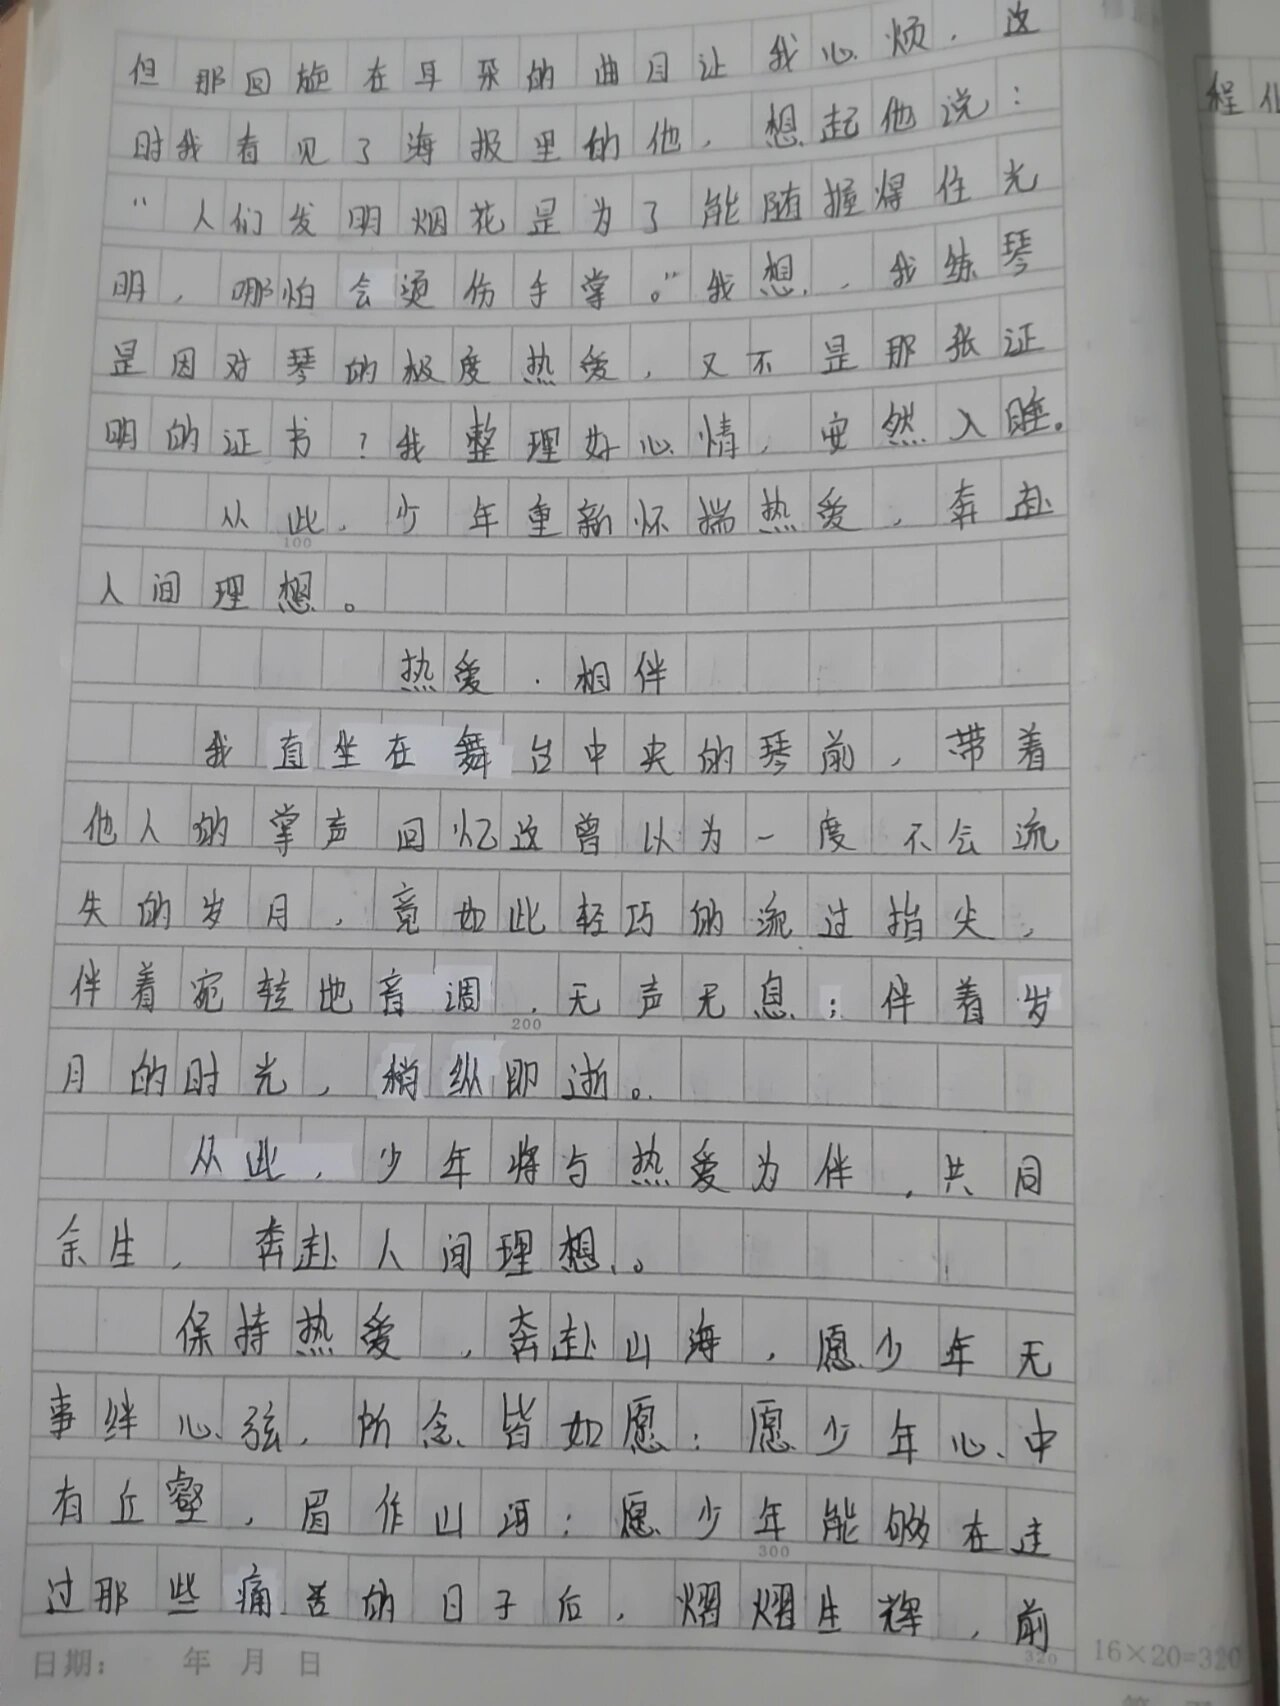 但那回旋在耳朵的曲目让我心烦,这
时我看见了海报里的他,想起他说:
“人们发明烟花是为了能随握得住光
明,哪怕会烫伤手掌。”我想,我练琴
是因对琴的极度热爱,又不是那张证
明的证书?我整理好心情,安然入睡。
从此,少年重新怀揣热爱,奔赴
100
人间理想。
热爱·相伴
我直坐在舞台中央的琴前,带着
他人的掌声回忆这曾以为一度不会流
失的岁月,竟如此轻巧的流过指尖,
伴着宛转地音调,无声无息;伴着岁
200
月的时光,稍纵即逝。
从此,少年将与热爱为伴,共同
余生,奔赴人间理想。
保持热爱,奔赴山海,愿少年无
事绊心弦,所念皆如愿;愿少年心中
有丘壑,眉作山河;愿少年能够在走
300
过那些痛苦的日子后,熠熠生辉,前
320
日期: 年 月 日
16×20=320
程